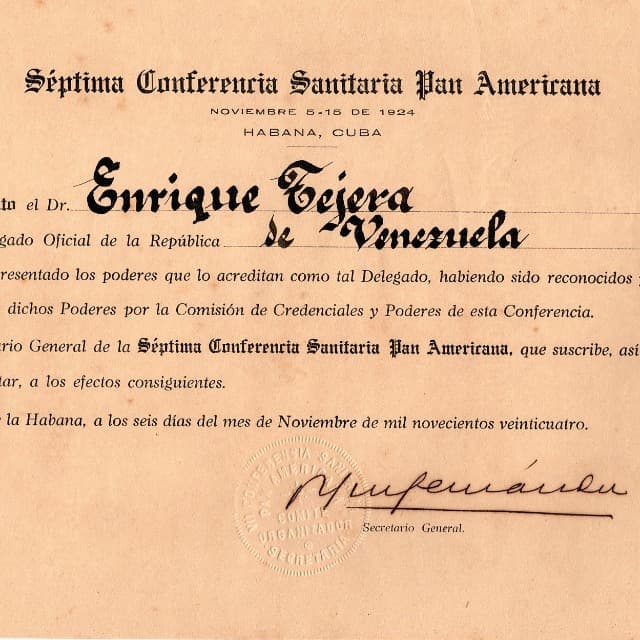 Séptima Conferencia Sanitaria Pan Americana
NOVIEMBRE 5-15 DE 1924
HABANA, CUBA
to el Dr. Enrique Tejera
gado Oficial de la República de Venezuela
resentado los poderes que lo acreditan como tal Delegado, habiendo sido reconocidos y
dichos Poderes por la Comisión de Credenciales y Poderes de esta Conferencia.
rio General de la Séptima Conferencia Sanitaria Pan Americana, que suscribe, así
tar, a los efectos consiguientes.
la Habana, a los seis días del mes de Noviembre de mil novecientos veinticuatro.
VII CONFERENCIA SANITARIA
PAN AMERICANA
COMITE
ORGANIZADOR
SECRETARIA
Secretario General.